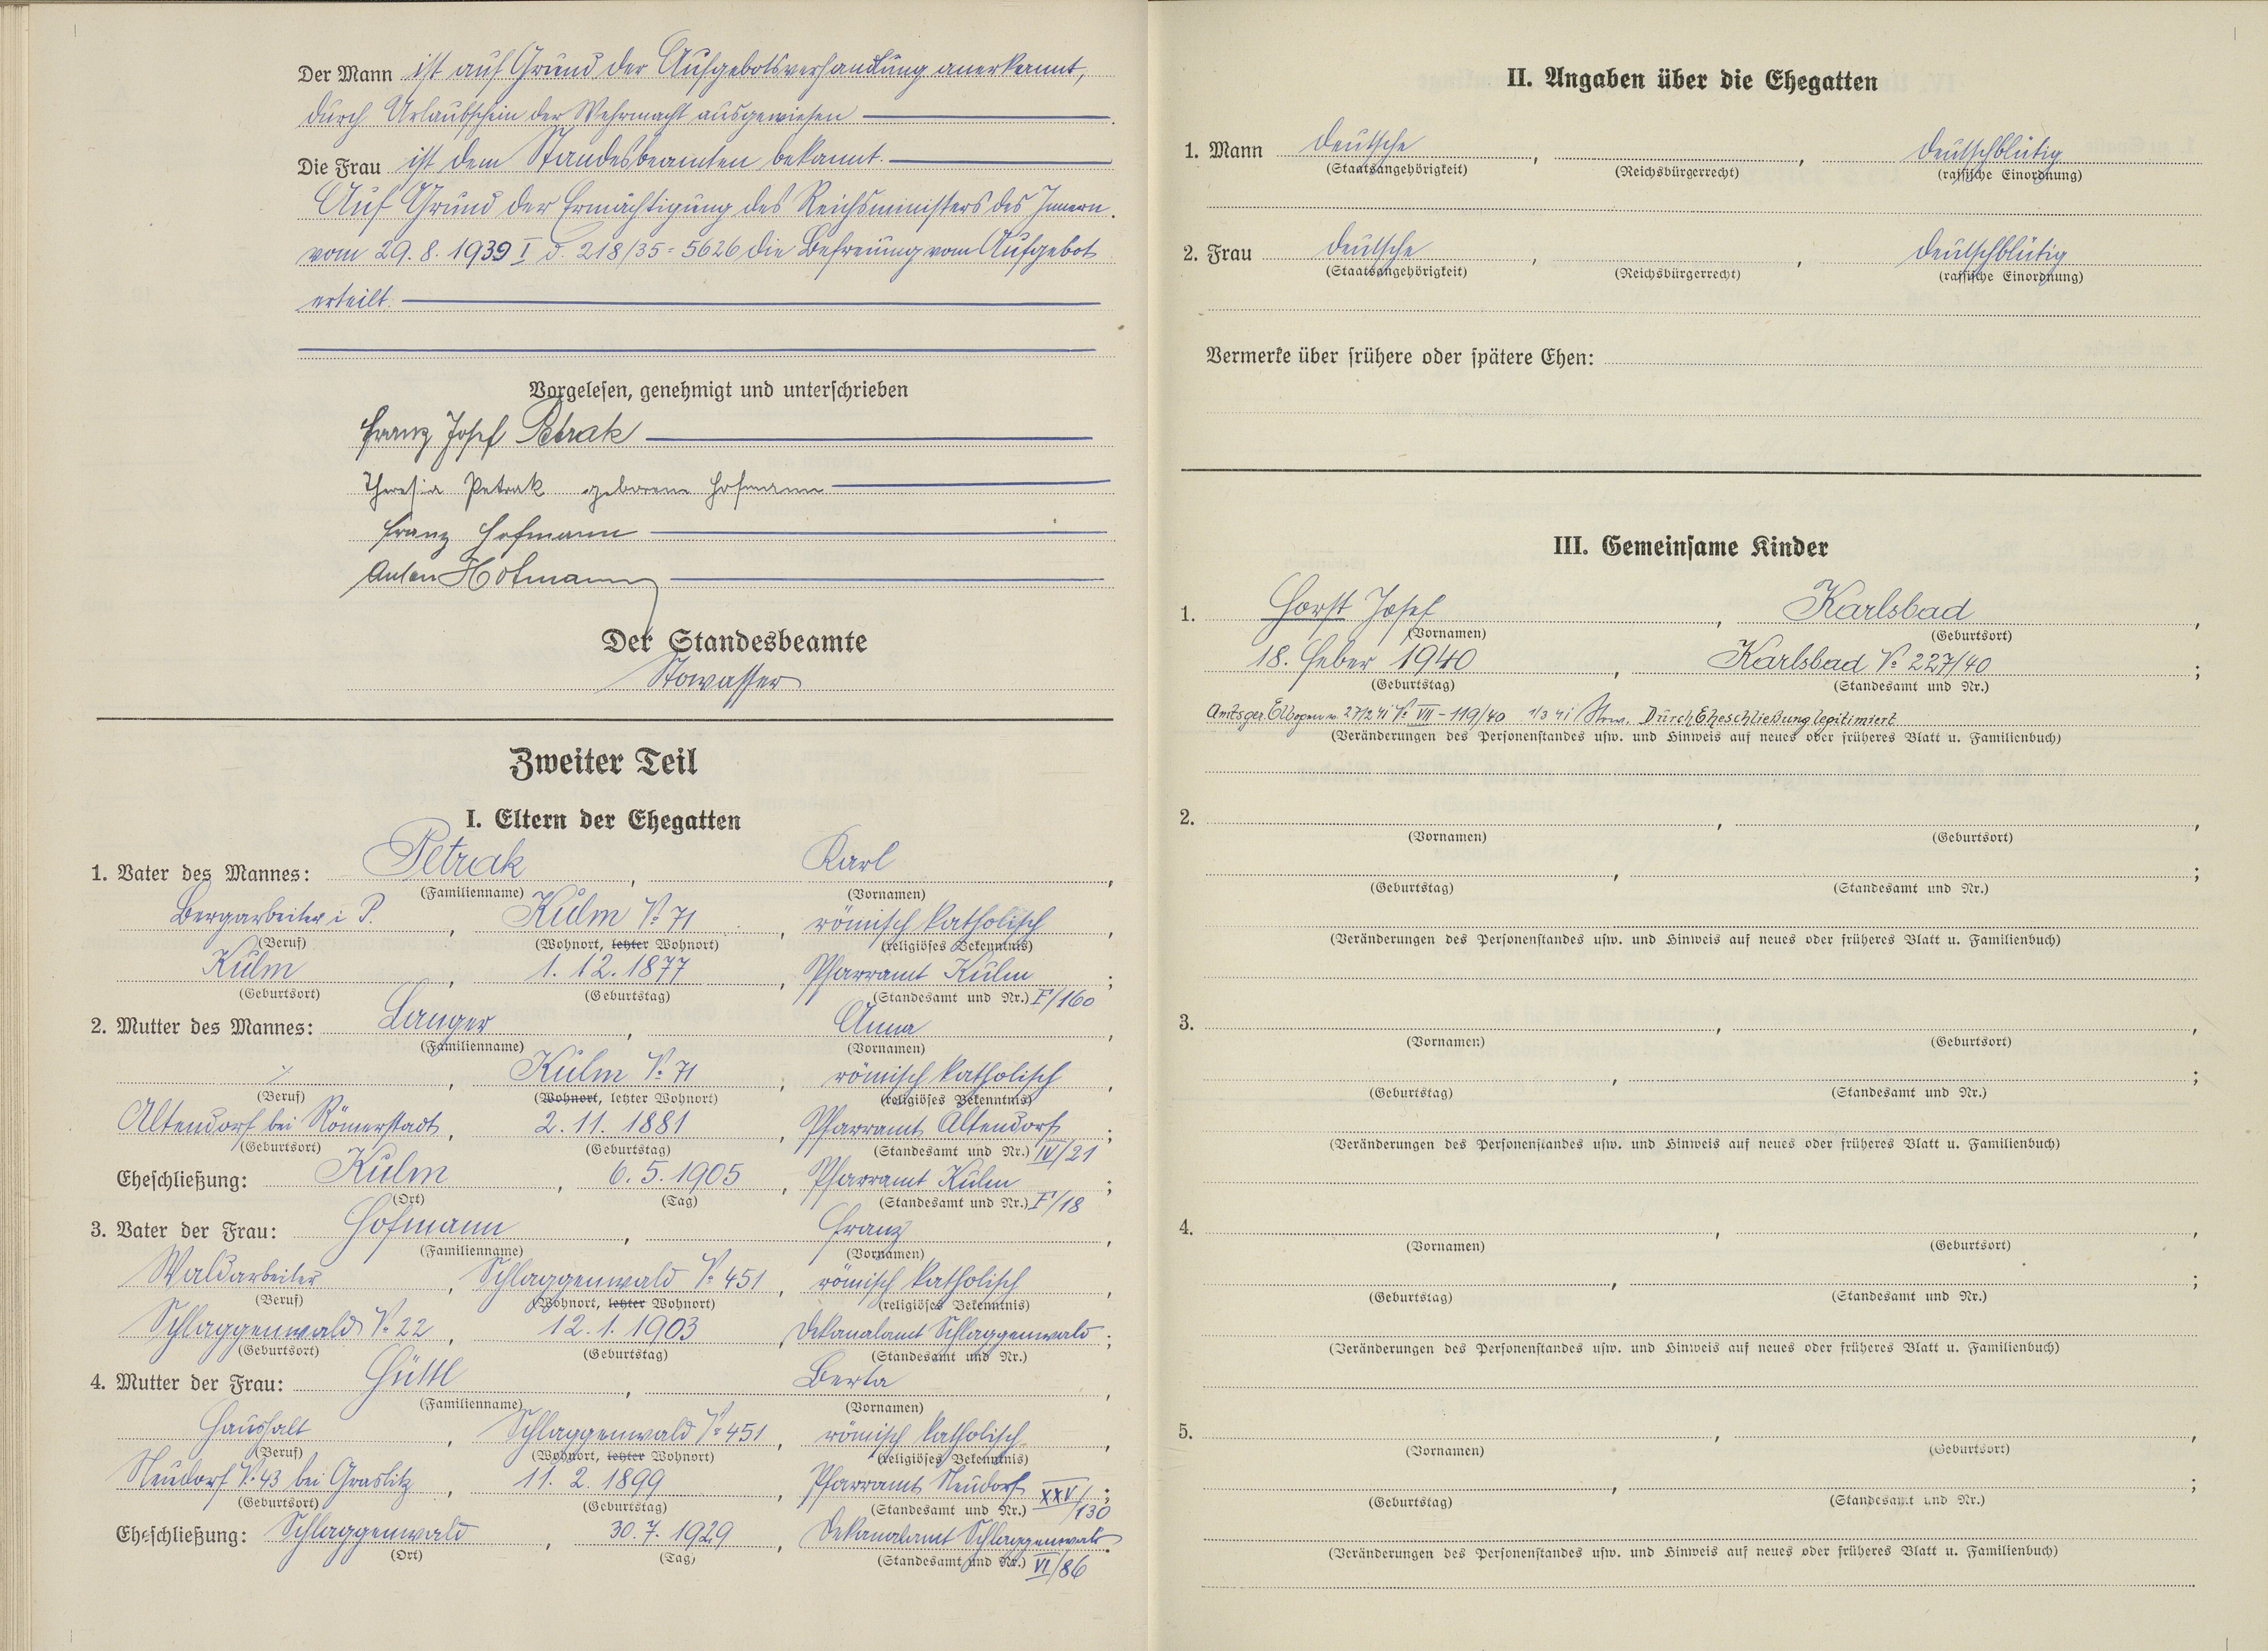 Der Mann ist auf Grund der Aufgebotsverhandlung anerkannt,
durch Urlaubschein der Wehrmacht ausgewiesen
Die Frau ist dem Standesbeamten bekannt.
Auf Grund der Ermächtigung des Reichsministers des Innern
vom 29. 8. 1939 I d. 218/35 = 5626 die Befreiung vom Aufgebot
erteilt.
Vorgelesen, genehmigt und unterschrieben
Franz Josef Petrak
Theresia Petrak geborene Hofmann
Franz Hofmann
Anton Hofmann
Der Standesbeamte
Stowasser
Zweiter Teil
I. Eltern der Ehegatten
1. Vater des Mannes: Petrak, Karl,
(Familienname) (Vornamen)
Bergarbeiter i P., Kulm № 71, römisch katholisch,
(Beruf) (Wohnort, letzter Wohnort) (religiöses Bekenntnis)
Kulm, 1. 12. 1877, Pfarramt Kulm;
(Geburtsort) (Geburtstag) (Standesamt und Nr.) F/160
2. Mutter des Mannes: Langer, Anna,
(Familienname) (Vornamen)
⁒, Kulm № 71, römisch katholisch,
(Beruf) (Wohnort, letzter Wohnort) (religiöses Bekenntnis)
Altendorf bei Römerstadt, 2. 11. 1881, Pfarramt Altendorf;
(Geburtsort) (Geburtstag) (Standesamt und Nr.) IV/21
Eheschließung: Kulm, 6. 5. 1905, Pfarramt Kulm;
(Ort) (Tag) (Standesamt und Nr.) F/18
3. Vater der Frau: Hofmann, Franz,
(Familienname) (Vornamen)
Waldarbeiter, Schlaggenwald № 451, römisch katholisch,
(Beruf) (Wohnort, letzter Wohnort) (religiöses Bekenntnis)
Schlaggenwald № 22, 12. 1. 1903, Dekanalamt Schlaggenwald;
(Geburtsort) (Geburtstag) (Standesamt und Nr.)
4. Mutter der Frau: Hüttl, Berta,
(Familienname) (Vornamen)
Haushalt, Schlaggenwald № 451, römisch katholisch,
(Beruf) (Wohnort, letzter Wohnort) (religiöses Bekenntnis)
Neudorf № 43 bei Graslitz, 11. 2. 1899, Pfarramt Neudorf XXV/130;
(Geburtsort) (Geburtstag) (Standesamt und Nr.)
Eheschließung: Schlaggenwald, 30. 7. 1929, Dekanalamt Schlaggenwald.
(Ort) (Tag) (Standesamt und Nr.) VI/86
II. Angaben über die Ehegatten
1. Mann deutsche, , deutschblütig
(Staatsangehörigkeit) (Reichsbürgerrecht) (rassische Einordnung)
2. Frau deutsche, , deutschblütig
(Staatsangehörigkeit) (Reichsbürgerrecht) (rassische Einordnung)
Vermerke über frühere oder spätere Ehen:
III. Gemeinsame Kinder
1. Horst Josef, Karlsbad,
(Vornamen) (Geburtsort)
18. Feber 1940, Karlsbad № 227/40;
(Geburtstag) (Standesamt und Nr.)
Amtsger. Elbogen v. 27/2 41 № VII - 119/40 1/3 41 Stow. Durch Eheschließung legitimiert
(Veränderungen des Personenstandes usw. und Hinweis auf neues oder früheres Blatt u. Familienbuch)
2. , ,
(Vornamen) (Geburtsort)
, ;
(Geburtstag) (Standesamt und Nr.)
(Veränderungen des Personenstandes usw. und Hinweis auf neues oder früheres Blatt u. Familienbuch)
3. , ,
(Vornamen) (Geburtsort)
, ;
(Geburtstag) (Standesamt und Nr.)
(Veränderungen des Personenstandes usw. und Hinweis auf neues oder früheres Blatt u. Familienbuch)
4. , ,
(Vornamen) (Geburtsort)
, ;
(Geburtstag) (Standesamt und Nr.)
(Veränderungen des Personenstandes usw. und Hinweis auf neues oder früheres Blatt u. Familienbuch)
5. , ,
(Vornamen) (Geburtsort)
, ;
(Geburtstag) (Standesamt und Nr.)
(Veränderungen des Personenstandes usw. und Hinweis auf neues oder früheres Blatt u. Familienbuch)